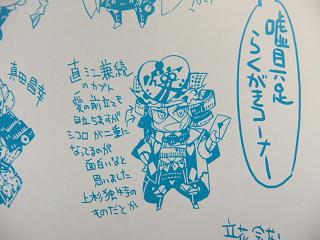 嘘目足
らくがきコーナー
直江兼続
のカブト
愛の前立も
目立ちますが
シコロが二重に
なってるのが
面白いなと
思いました
上杉独特の
ものだとか
真田昌幸